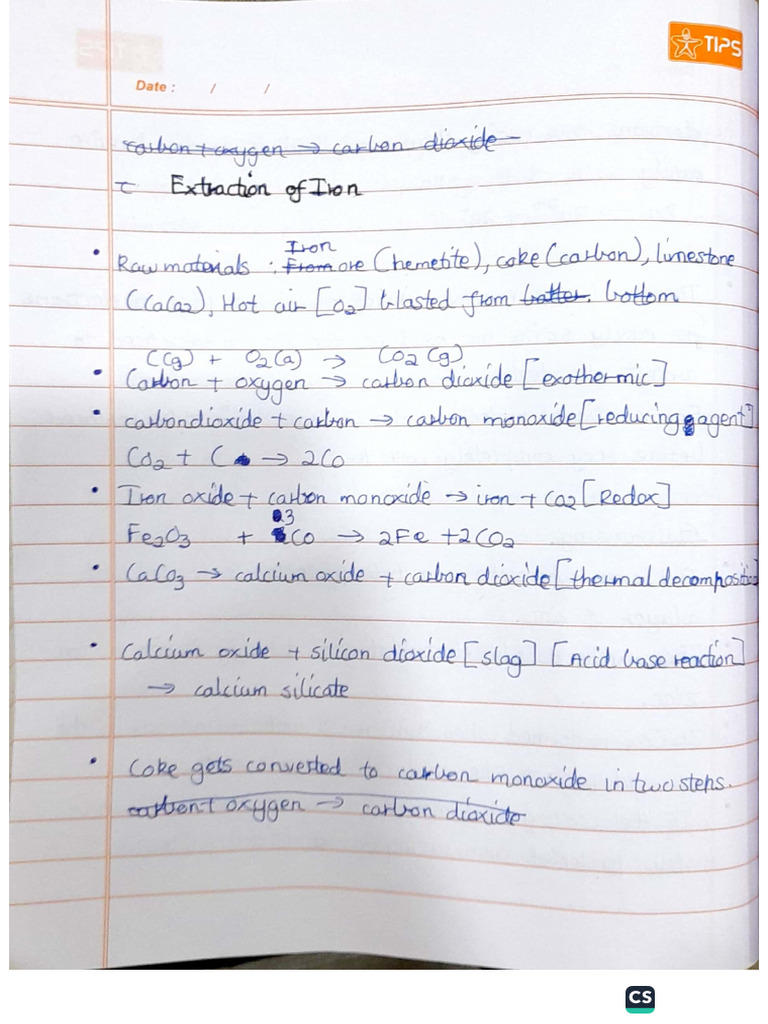 TIPS
Date : / /
carbon + oxygen → carbon dioxide
Extraction of Iron
Iron
• Raw materials : From ore (hemetite), coke (carbon), limestone
(CaCa2), Hot air [O2] blasted from botter. bottom
C(g) + O2(a) → CO2(g)
• Carbon + oxygen → carbon dioxide [exothermic]
• carbondioxide + carbon → carbon monoxide [reducing agent]
CO2 + C → 2CO
• Iron oxide + carbon monoxide → iron + Ca2 [Redox]
3
Fe2O3 + CO → 2Fe + 2CO2
• CaCO3 → calcium oxide + carbon dioxide [thermal decompositio
• Calcium oxide + silicon dioxide [slag] [Acid base reaction]
→ calcium silicate
• Coke gets converted to carbon monoxide in two steps.
carbon + oxygen → carbon dioxide
CS